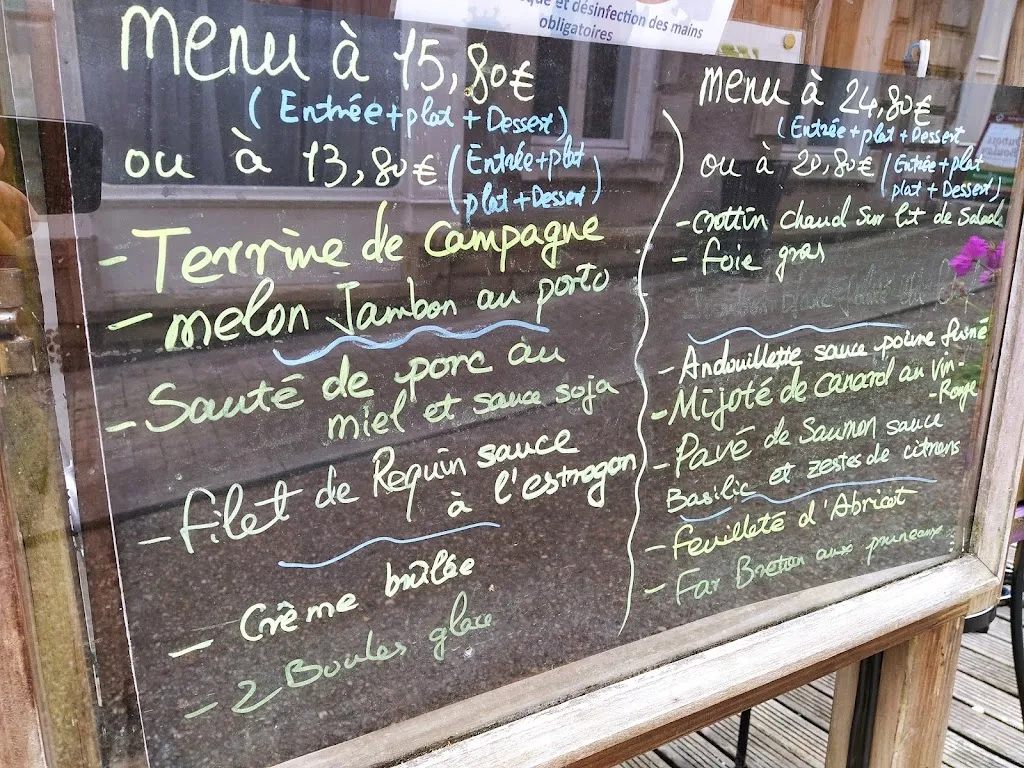 et désinfection des mains
obligatoires
Menu à 15,80€
(Entrée+plat+Dessert)
ou à 13,80€ (Entrée+plat
plat+Dessert)
- Terrine de Campagne
- melon Jambon au porto
- Sauté de porc au
miel et sauce soja
- filet de Requin sauce
à l'estragon
- Crème brûlée
- 2 Boules glace
menu à 24,80€
(Entrée+plat+Dessert
ou à 20,80€ (Entrée+plat
plat+Dessert)
- Crottin chaud sur lit de Salade
- foie gras
- Andouillette sauce poivre
- Mijoté de Canard au vin
- Rouge
- Pavé de Saumon sauce
Basilic et zestes de citrons
- feuilleté d'Abricot
- Far Breton aux pruneaux